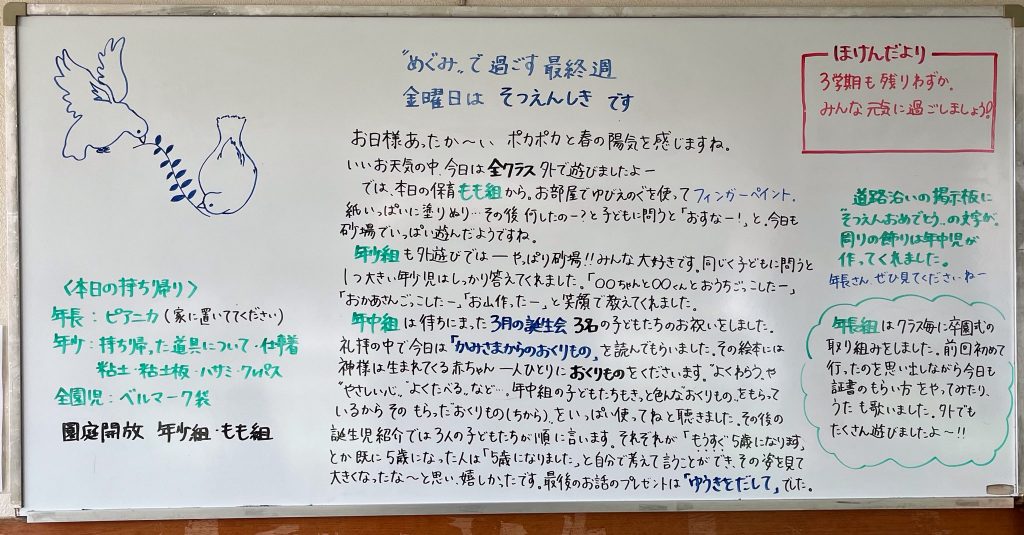 "めぐみ"で過ごす最終週
金曜日は そつえんしき です
お日様あったか〜い ポカポカと春の陽気を感じますね。
いいお天気の中、今日は全クラス外で遊びましたよー
では、本日の保育もも組から。お部屋でゆびえのぐを使ってフィンガーペイント。
紙いっぱいに塗りぬり…その後何したのー?と子どもに問うと「おすなー!」と。今日も
砂場でいっぱい遊んだようですね。
年少組も外遊びではーやっぱり砂場!!みんな大好きです。同じく子どもに問うと
1つ大きい年少児はしっかり答えてくれました。「〇〇ちゃんと〇〇くんとおうちごっこしたー」
「おかあさんごっこしたー」「お山作ったー」と笑顔で教えてくれました。
年中組は待ちにまった3月の誕生会 3名の子どもたちのお祝いをしました。
礼拝の中で今日は「かみさまからのおくりもの」を読んでもらいました。その絵本には
神様は生まれてくる赤ちゃん一人ひとりにおくりものをくださいます。"よくわらう"や
"やさしい心"、"よくたべる"、など…。年中組の子どもたちもきっと色んなおくりもの、をもらって
いるからその もらったおくりもの(ちから)、をいっぱい使ってねと聴きました。その後の
誕生児紹介では3人の子どもたちが順に言います。それぞれが「もうすぐ5歳になります」
とか既に5歳になった人は「5歳になりました」と自分で考えて言うことができ、その姿を見て
大きくなったな〜と思い、嬉しかったです。最後のお話のプレゼントは「ゆうきをだして」でした。
ほけんだより
3学期も残りわずか。
みんな元気に過ごしましょう!
道路沿いの掲示板に
"そつえんおめでとう"の文字が。
周りの飾りは年中児が
作ってくれました。
年長さん ぜひ見てくださいねー
年長組はクラス毎に卒園式の
取り組みをしました。前回初めて
行ったのを思い出しながら今日も
証書のもらい方をやってみたり、
うたも歌いました。外でも
たくさん遊びましたよ〜!!
〈本日の持ち帰り〉
年長:ピアニカ(家に置いててください)
年少:持ち帰った道具について・仕事着
粘土・粘土板・ハサミ・クレパス
全園児:ベルマーク袋
園庭開放 年少組・もも組